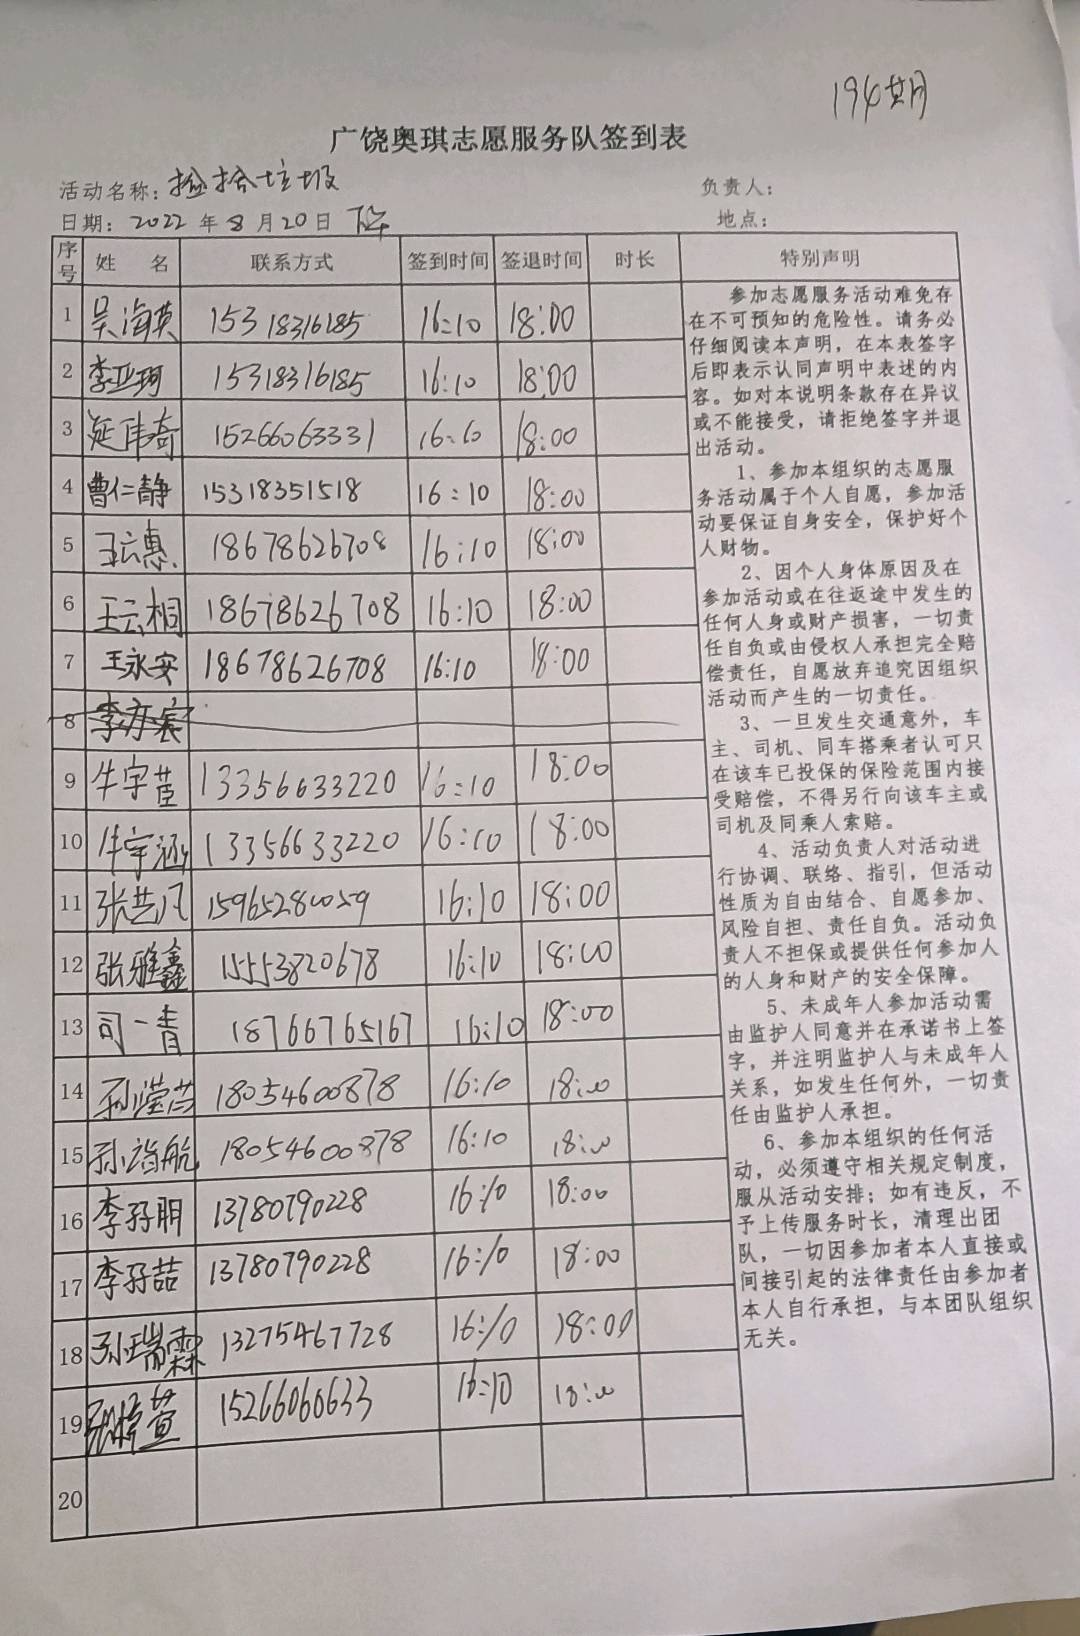 194期
广饶奥琪志愿服务队签到表
活动名称：捡拾垃圾 负责人：
日期：2022年8月20日 下午 地点：
序号 姓名 联系方式 签到时间 签退时间 时长 特别声明
1 吴海英 15318316185 16:10 18:00
2 李亚珂 15318316185 16:10 18:00
3 延伟奇 15266063331 16:10 18:00
4 曹仁静 15318351518 16:10 18:00
5 王云惠 18678626708 16:10 18:00
6 王云桐 18678626708 16:10 18:00
7 王永安 18678626708 16:10 18:00
8 李亦宸
9 牛宇萱 13356633220 16:10 18:00
10 牛宇涵 13356633220 16:10 18:00
11 张艺凡 15965280059 16:10 18:00
12 张雅鑫 15553820678 16:10 18:00
13 司一青 18766765167 16:10 18:00
14 孙滢 18054600878 16:10 18:00
15 孙 航 18054600878 16:10 18:00
16 李孖玥 13780790228 16:10 18:00
17 李孖喆 13780790228 16:10 18:00
18 孙瑞霖 13275467728 16:10 18:00
19 张梓萱 15266060633 16:10 18:00
20
参加志愿服务活动难免存
在不可预知的危险性。请务必
仔细阅读本声明，在本表签字
后即表示认同声明中表述的内
容。如对本说明条款存在异议
或不能接受，请拒绝签字并退
出活动。
1、参加本组织的志愿服
务活动属于个人自愿，参加活
动要保证自身安全，保护好个
人财物。
2、因个人身体原因及在
参加活动或在往返途中发生的
任何人身或财产损害，一切责
任自负或由侵权人承担完全赔
偿责任，自愿放弃追究因组织
活动而产生的一切责任。
3、一旦发生交通意外，车
主、司机、同车搭乘者认可只
在该车已投保的保险范围内接
受赔偿，不得另行向该车主或
司机及同乘人索赔。
4、活动负责人对活动进
行协调、联络、指引，但活动
性质为自由结合、自愿参加、
风险自担、责任自负。活动负
责人不担保或提供任何参加人
的人身和财产的安全保障。
5、未成年人参加活动需
由监护人同意并在承诺书上签
字，并注明监护人与未成年人
关系，如发生任何外，一切责
任由监护人承担。
6、参加本组织的任何活
动，必须遵守相关规定制度，
服从活动安排；如有违反，不
予上传服务时长，清理出团
队，一切因参加者本人直接或
间接引起的法律责任由参加者
本人自行承担，与本团队组织
无关。